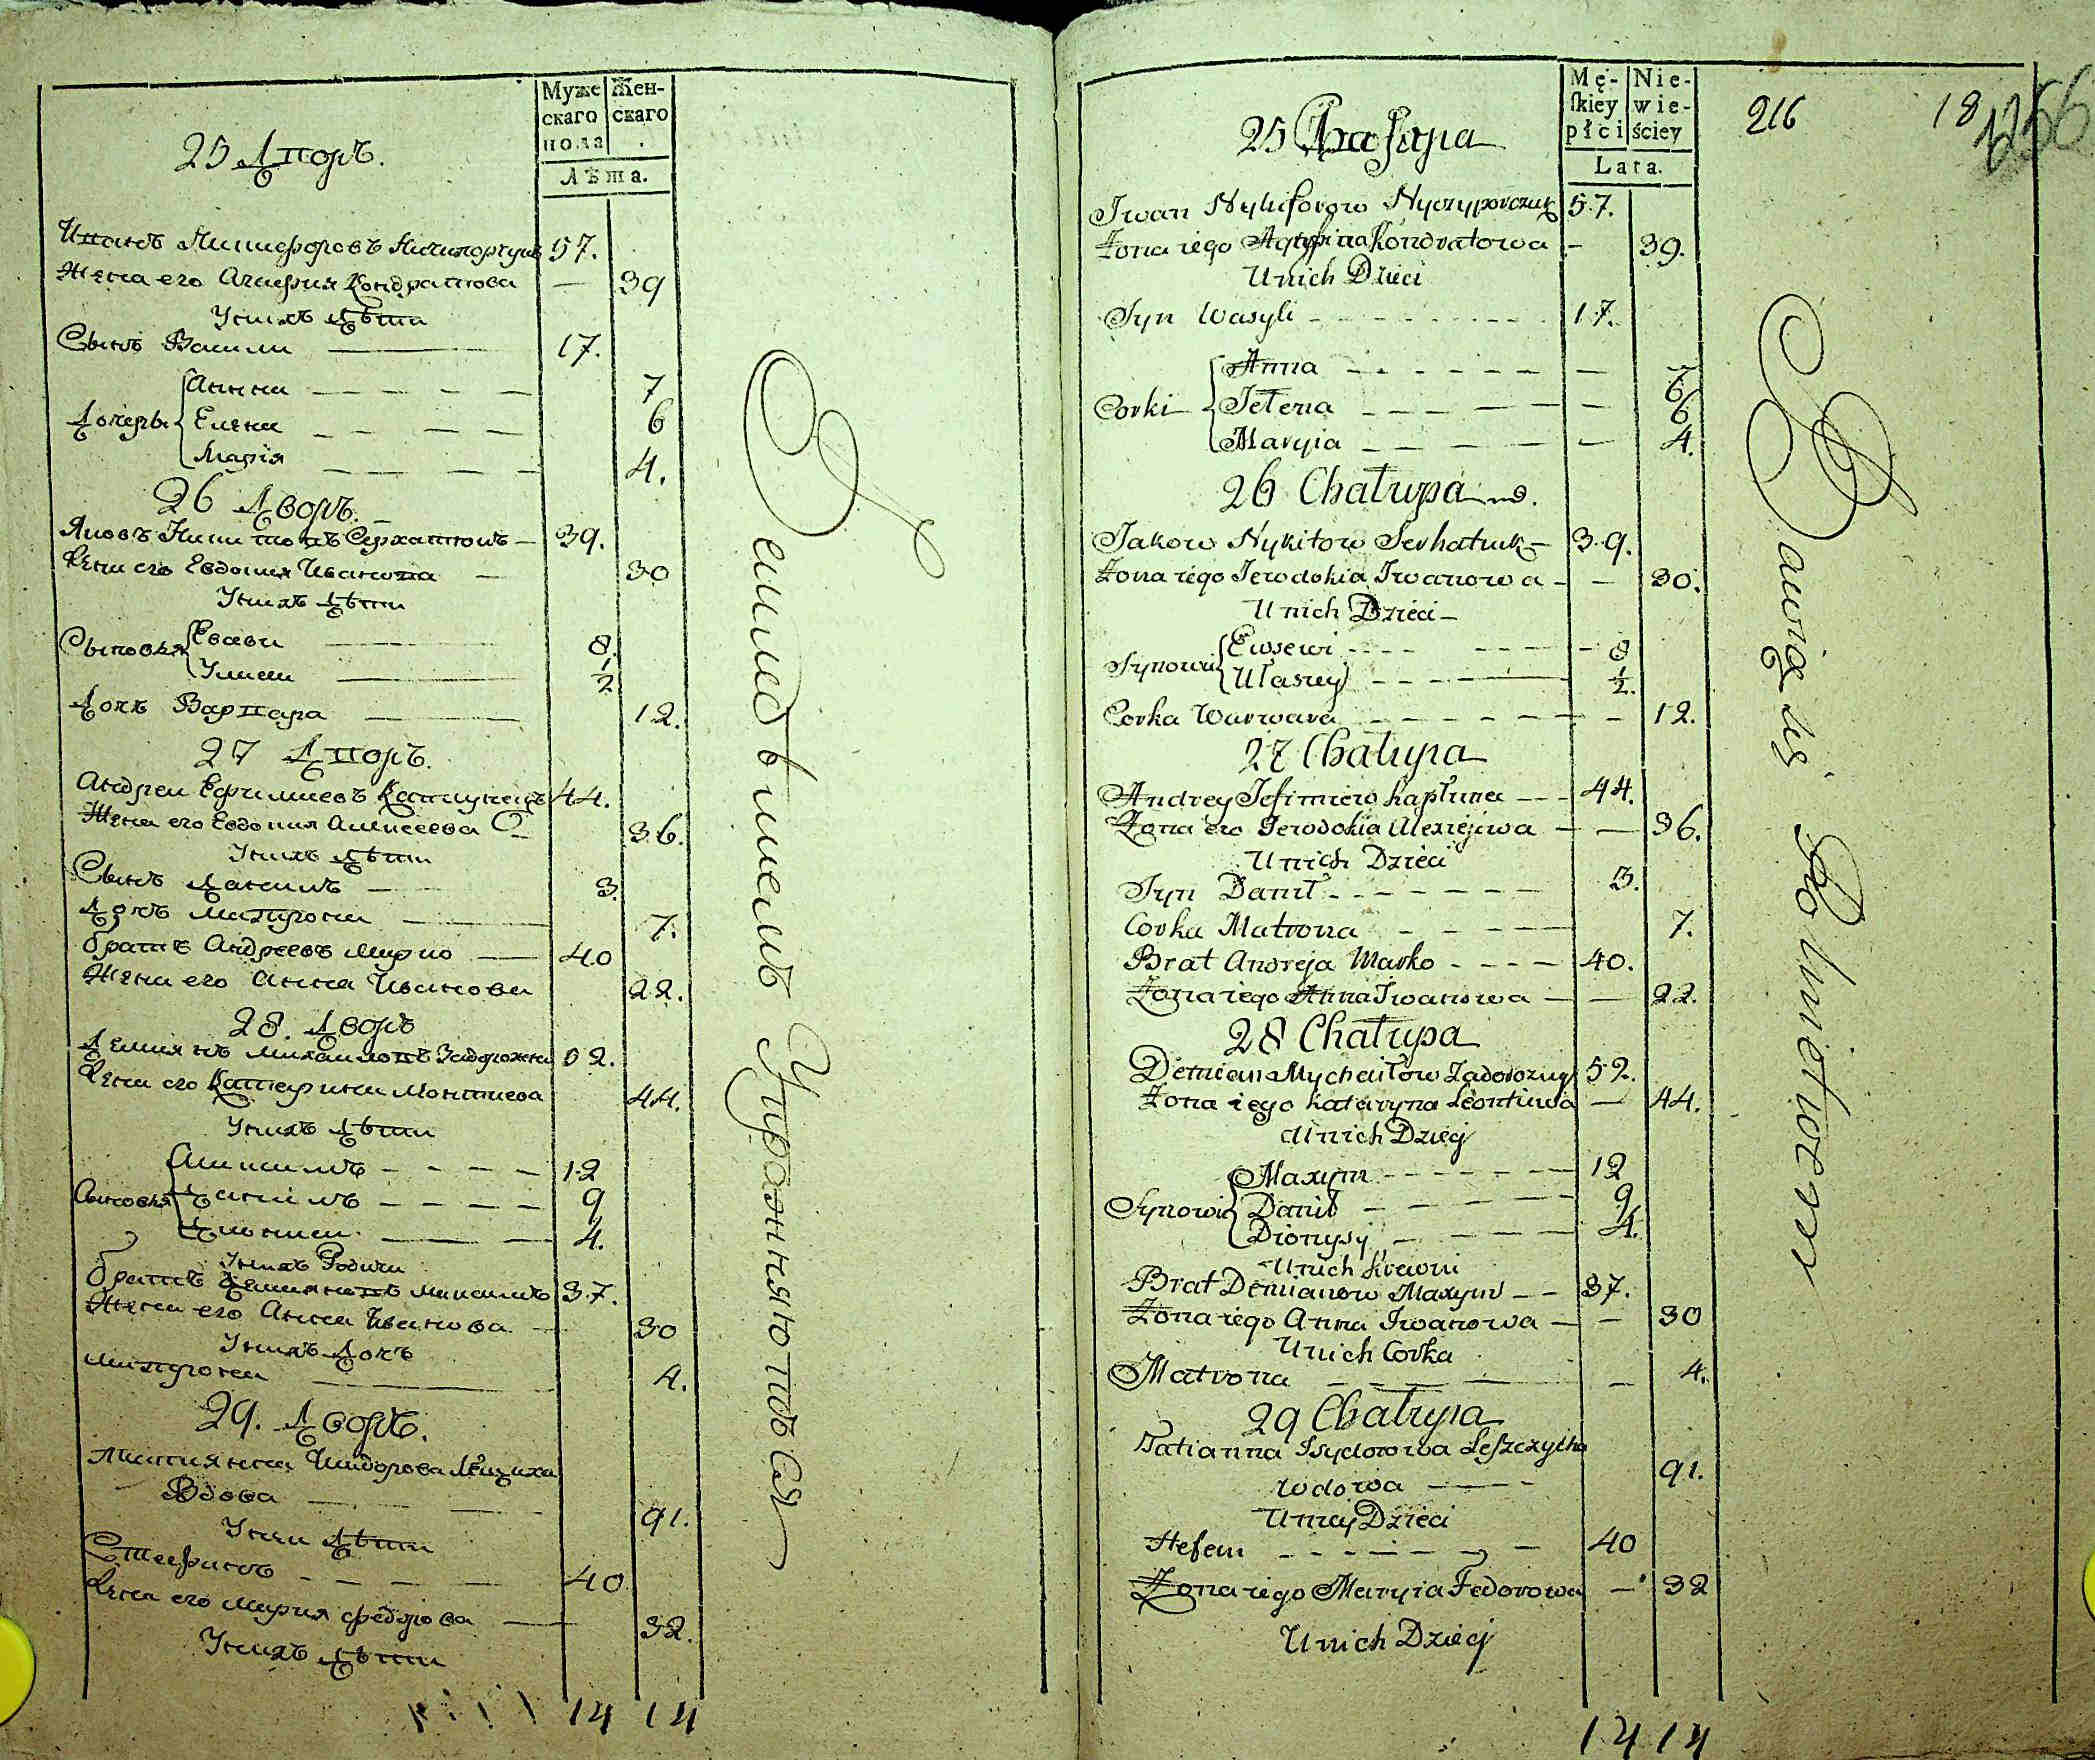 Муже
скаго
пола
Жен-
скаго
Лѣта.
25 Дворъ.
Иванъ Никифоровъ Ничипорчукъ 57.
Жена его Агафия Кондратова — 39
У нихъ дѣти
Сынъ Васили 17.
Дочеры
Анна 7
Елена 6
Мария 4.
26 Дворъ.
Яковъ Никитовъ Серхатюкъ 39.
Жена его Евдокия Иванова — 30
У нихъ дѣти
Сыновья
Евсеви 8.
Уласи 1/2
Дочь Варвара 12.
27 Дворъ.
Андреи Ефимиевъ 44.
Жена его Евдокия Алексеева 36.
У нихъ дѣти
Сынъ Данилъ 3.
Дочь Матрона 7.
братъ Андреевъ Марко 40
Жена его Анна Иванова 22.
28. Дворъ
Демиянъ Михаиловъ Задорожни 52.
Жена его Катерина Леонтиева 44.
У нихъ дѣти
Сыновья
Максимъ 12
Данiилъ 9
Диониси 4.
У нихъ Родичи
братъ Демияновъ Максимъ 37.
Жена его Анна Иванова 30
У нихъ Дочь
Матрона 4.
29. Дворъ.
Татиянна Исидорова Лещиха
Вдова 91.
У неи дѣти
Стефанъ 40
Жена его Мария Федорова 32.
У нихъ дѣти
14 14
Mę-
ſkiey
płci
Nie-
wie-
ściey
Lata.
216
18
25 Chałupa
Iwan Nykiforow Nyczyporczuk 57.
Żona iego Agafina Kondratowa — 39.
U nich Dzieci
Syn Wasyli 17.
Corki
Anna — 7
Jełena — 6
Maryia — 4.
26 Chałupa
Jakow Nykitow Serhatiuk 39.
Żona iego Jewdokia Iwanowa — 30.
U nich Dzieci
Synowi
Ewsewi 8
Ułasiey 1/2.
Corka Warwara — 12.
27 Chałupa
Andrey Jefimiew Kapłuniec 44.
Żona ego Jewdokia Alexiejewa — 36.
U nich Dzieci
Syn Danił 3.
Corka Matrona 7.
Brat Andreja Marko 40.
Żona iego Anna Iwanowa — 22.
28 Chałupa
Demian Mychaiłow Zadorozny 52.
Żona iego Kataryna Leontiewa — 44.
U nich Dziecj
Synowi
Maxym 12
Danił 9
Dionysy 4.
U nich Krewni
Brat Demianow Maxym 37.
Żona iego Anna Iwanowa — 30
U nich Corka
Matrona — 4.
29 Chałupa
Tatianna Isydorowa Leszczycha
Wdowa 91.
U niey Dzieci
Stefan 40
Żona iego Maryia Fedorowa — 32
U nich Dziecj
14 14